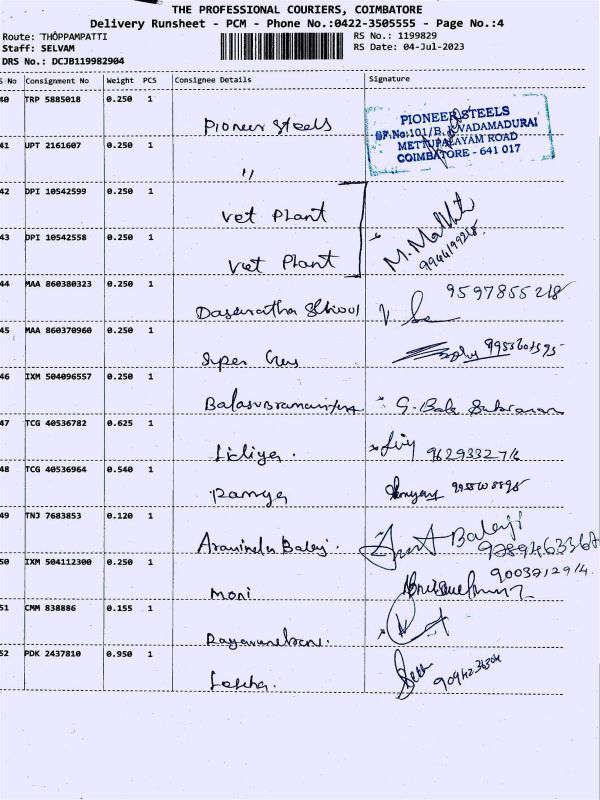 THE PROFESSIONAL COURIERS, COIMBATORE
Delivery Runsheet - PCM - Phone No.:0422-3505555 - Page No.:4
Route: THÒPPAMPATTI
RS No.: 1199829
Staff: SELVAM
RS Date: 04-Jul-2023
DRS No.: DCJB119982904
S No Consignment No Weight PCS Consignee Details Signature
40 TRP 5885018 0.250 1
Pioneer Steels
PIONEER STEELS
SF.No:101/B, VADAMADURAI
METTUPALAYAM ROAD
COIMBATORE - 641 017
41 UPT 2161607 0.250 1
"
42 DPI 10542599 0.250 1
Vet Plant
43 DPI 10542558 0.250 1
Vet Plant
M.
44 MAA 860380323 0.250 1
School
9597855218
45 MAA 860370960 0.250 1
Super
46 IXM 504096557 0.250 1
G. Bala
47 TCG 40536782 0.625 1
Lidiya.
48 TCG 40536964 0.540 1
Ramya
49 TNJ 7683853 0.120 1
Aravinda Balaji.
Balaji
9789463367
50 IXM 504112300 0.250 1
Moni
9003712914
51 CMM 838886 0.155 1
52 PDK 2437810 0.950 1